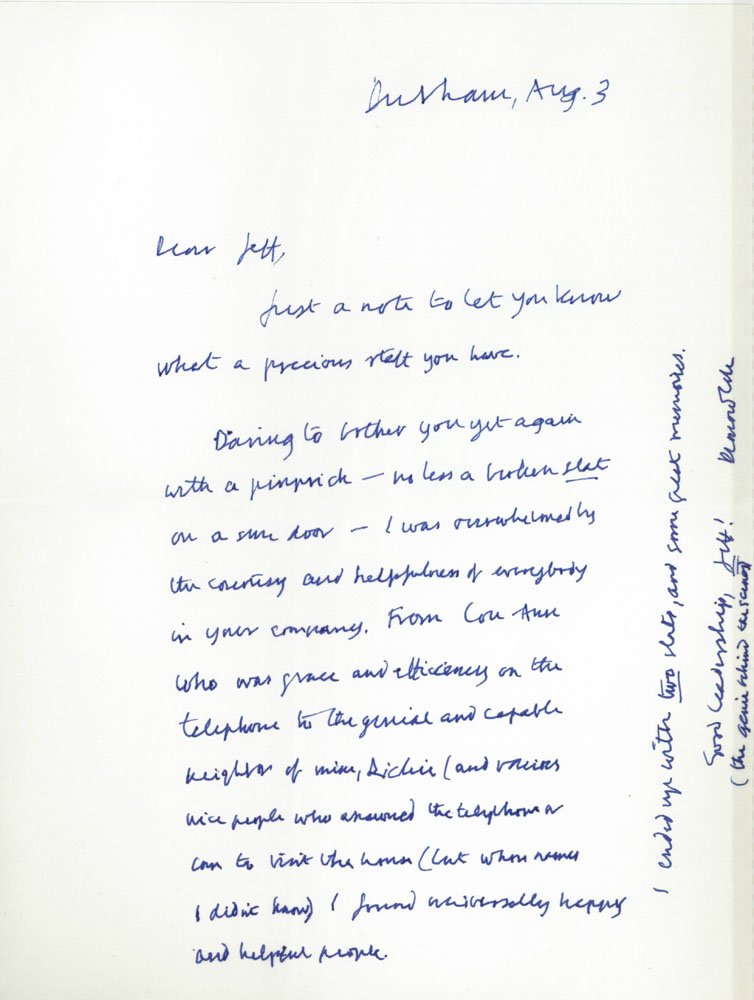 Durham, Aug. 3
Dear Jeff,
Just a note to let you know
what a precious staff you have.
Daring to bother you yet again
with a pinprick — no less a broken slat
on a door — I was overwhelmed by
the courtesy and helpfulness of everybody
in your company. From Lou Ann
who was grace and efficiency on the
telephone to the genial and capable
neighbor of mine, Richie (and various
nice people who answered the telephone or
came to visit the house (but whose names
I didn't know) I found universally happy
and helpful people.
I ended up with two slats, and some great memories.
Good leadership, Jeff!
(the genie behind the scenes)